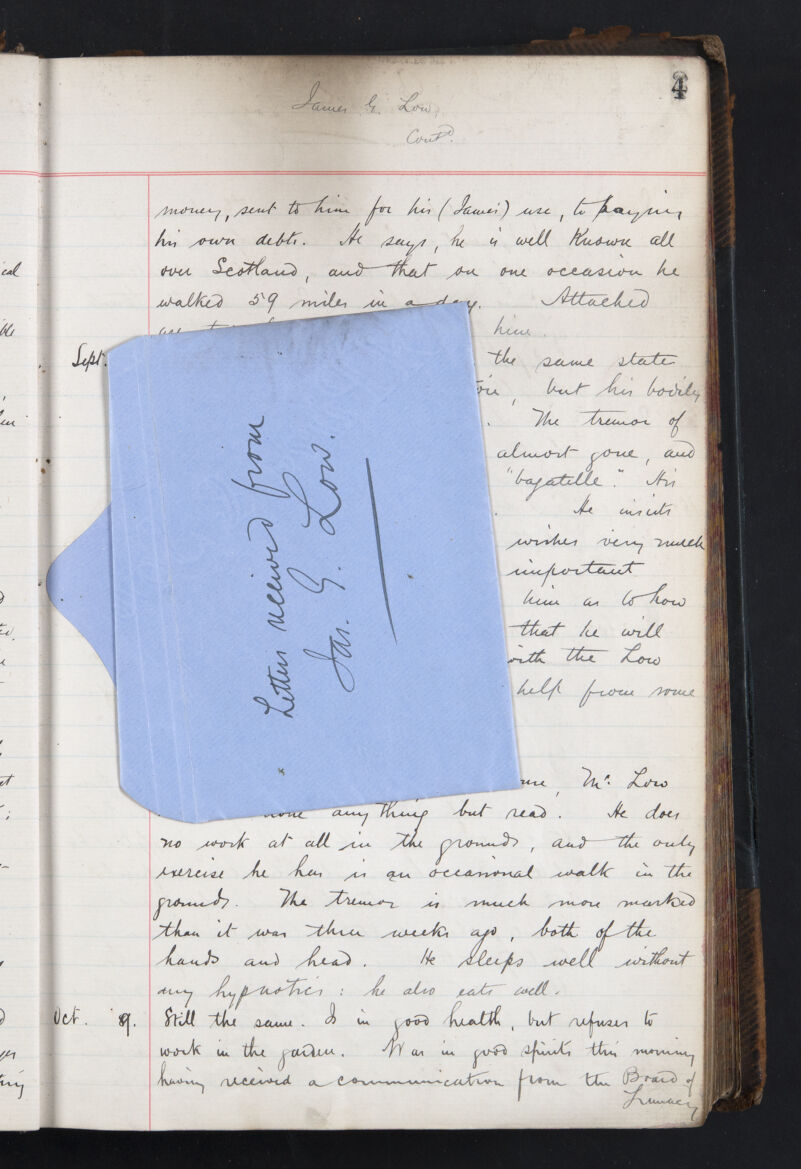 4
James G. Low,
Contd.
money, sent to him for his (James') use, to paying
his own debts. He says, he is well known all
over Scotland, and that on one occasion he
walked 59 miles in a day. Attached
him.
Sept. the same state
but his bodily
The tremor of
almost gone, and
"bagatelle". His
He insists
wishes very much
important
him as to how
that he will
with the Low
help from some
Letters received from
Jas. G. Low.
Mr. Low
anything but read. He does
no work at all in the grounds, and the only
exercise he has is an occasional walk in the
grounds. The tremor is much more marked
than it was three weeks ago, both of the
hands and head. He sleeps well without
any hypnotics: he also eats well.
Oct. 9. Still the same. Is in good health, but refuses to
work in the garden. Was in good spirits this morning
having received a communication from the Board of
Lunacy